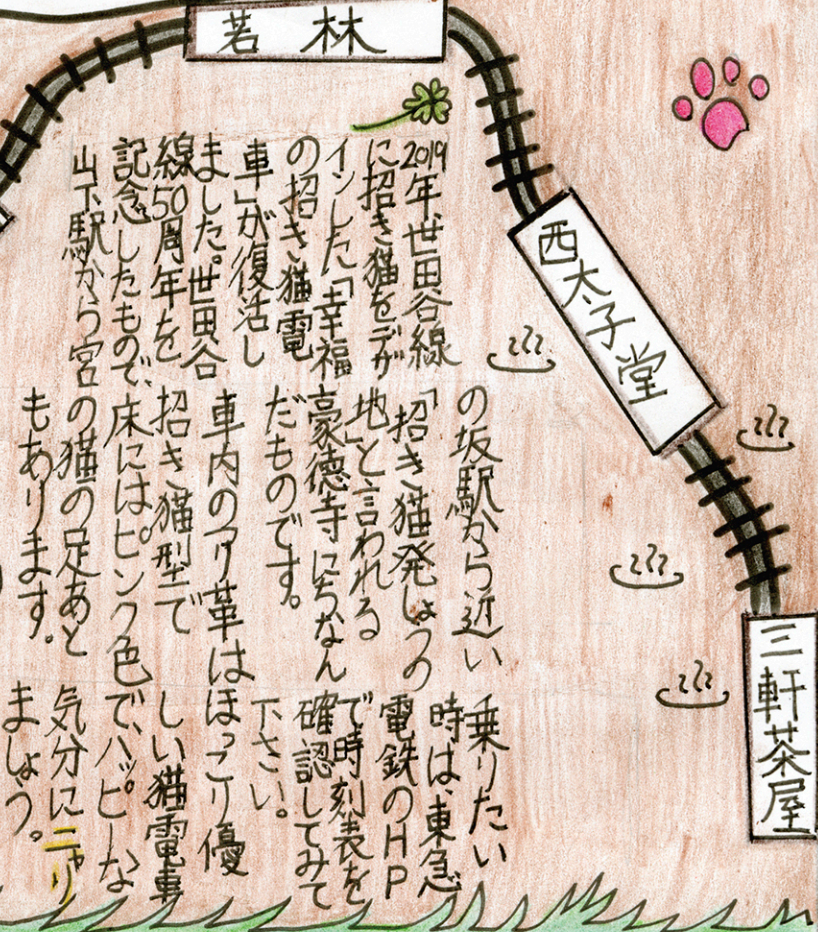 若林
西太子堂
三軒茶屋
2019年世田谷線
に招き猫をデザ
インした「幸福
の招き猫電
車」が復活し
ました。世田谷
線50周年を
記念したもので、
山下駅から宮
の坂駅から近い
「招き猫発しょうの
地」と言われる
豪徳寺にちなん
だものです。
車内のつり革は
招き猫型で
床にはピンク色
の猫の足あと
もあります。
乗りたい
時は、東急
電鉄のHP
で時刻表を
確認してみて
下さい。
ほっこり優
しい猫電車
で、ハッピーな
気分にニャり
ましょう。